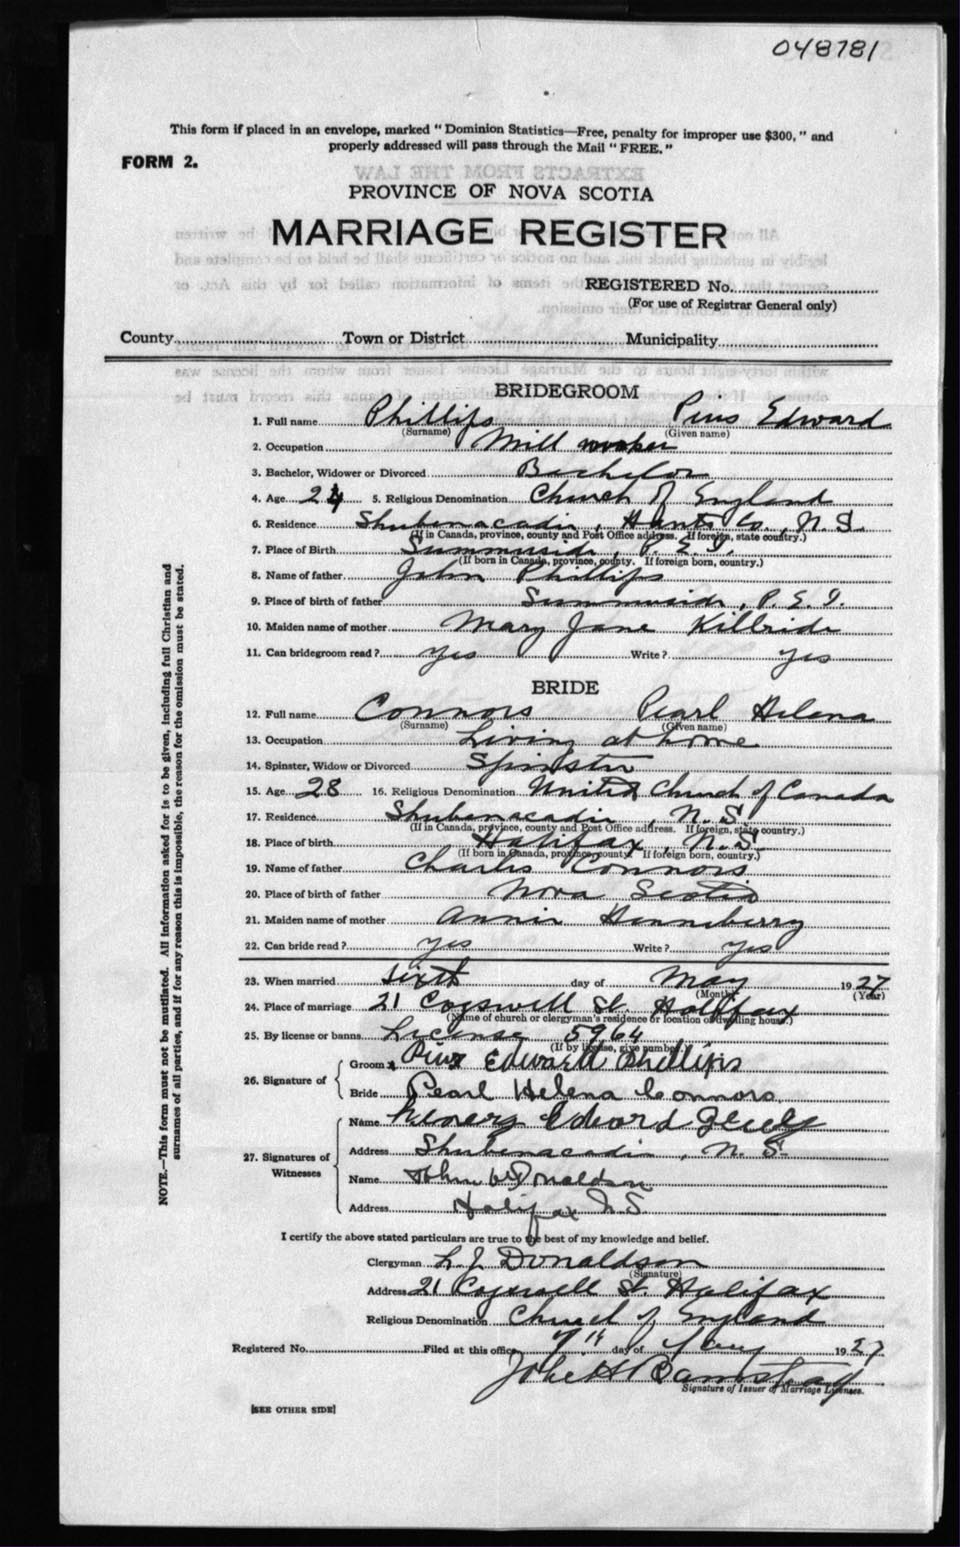 048781
This form if placed in an envelope, marked "Dominion Statistics—Free, penalty for improper use $300," and
properly addressed will pass through the Mail "FREE."
FORM 2.
EXTRACTS FROM THE LAW
PROVINCE OF NOVA SCOTIA
MARRIAGE REGISTER
REGISTERED No.
(For use of Registrar General only)
County Town or District Municipality
BRIDEGROOM
1. Full name Phillips Pius Edward
(Surname) (Given name)
2. Occupation Mill worker
3. Bachelor, Widower or Divorced Bachelor
4. Age 24 5. Religious Denomination Church of England
6. Residence Shubenacadie, Hants Co., N.S.
(If in Canada, province, county and Post Office address. If foreign, state country.)
7. Place of Birth Summerside, P.E.I.
(If born in Canada, province, county. If foreign born, country.)
8. Name of father John Phillips
9. Place of birth of father Summerside, P.E.I.
10. Maiden name of mother Mary Jane Killride
11. Can bridegroom read? yes Write? yes
BRIDE
12. Full name Connors Pearl Helena
(Surname) (Given name)
13. Occupation Living at home
14. Spinster, Widow or Divorced Spinster
15. Age 28 16. Religious Denomination United Church of Canada
17. Residence Shubenacadie, N.S.
(If in Canada, province, county and Post Office address. If foreign, state country.)
18. Place of birth Halifax, N.S.
(If born in Canada, province, county. If foreign born, country.)
19. Name of father Charles Connors
20. Place of birth of father Nova Scotia
21. Maiden name of mother Annie Henneberry
22. Can bride read? yes Write? yes
23. When married sixth day of May 1927
(Month) (Year)
24. Place of marriage 21 Cogswell St. Halifax
(Name of church or clergyman's residence or location of dwelling house.)
25. By license or banns License 5964
(If by license, give number)
26. Signature of
Groom Pius Edward Phillips
Bride Pearl Helena Connors
27. Signatures of Witnesses
Name Edward
Address Shubenacadie, N.S.
Name Donaldson
Address Halifax N.S.
I certify the above stated particulars are true to the best of my knowledge and belief.
Clergyman L. J. Donaldson
(Signature)
Address 21 Cogswell St. Halifax
Religious Denomination Church of England
Registered No. Filed at this office 7th day of May 1927
John H Barnstead
Signature of Issuer of Marriage Licenses.
[SEE OTHER SIDE]
NOTE.—This form must not be mutilated. All information asked for is to be given, including full Christian and
surnames of all parties, and if for any reason this is impossible, the reason for the omission must be stated.